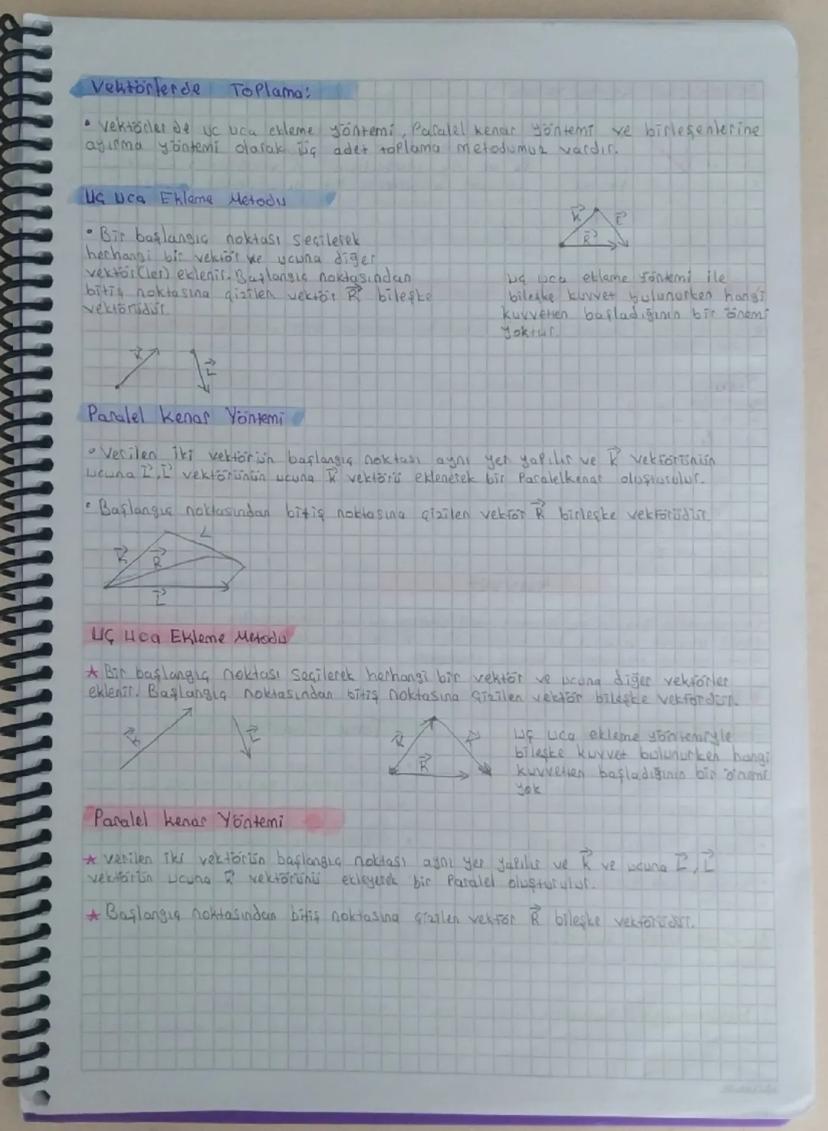 Vektörlerde Toplama:
• Vektörlerde uc uca ekleme yöntemi, Paralel kenar yöntemi ve birleşenlerine
ayırma yöntemi olarak üç adet toplama metodumuz vardır.
Uç Uca Ekleme Metodu
• Bir başlangıç noktası seçilerek
herhangi bir vektör ve ucuna diğer
vektör(ler) eklenir. Başlangıç noktasından
bitiş noktasına çizilen vektör R bileşke
vektörüdür.
K L
R
uç uca ekleme yöntemi ile
bileşke kuvvet bulunurken hangi
kuvvetten başladığının bir önemi
yoktur.
K L
Paralel Kenar Yöntemi
• Verilen iki vektörün başlangıç noktası aynı yer yapılır ve K vektörünün
ucuna L, L vektörünün ucuna K vektörü eklenerek bir Paralelkenar oluşturulur.
• Başlangıç noktasından bitiş noktasına çizilen vektör R birleşke vektörüdür.
L
K R
L
Uç Uca Ekleme Metodu
★ Bir başlangıç noktası seçilerek herhangi bir vektör ve ucuna diğer vektörler
eklenir. Başlangıç noktasından bitiş noktasına çizilen vektör bileşke vektördür.
K L
R
uç uca ekleme yöntemiyle
bileşke kuvvet bulunurken hangi
kuvvetten başladığının bir önemi
yok
Paralel kenar Yöntemi
★ verilen iki vektörün başlangıç noktası aynı yer yapılır ve K ve ucuna L, L
vektörün ucuna K vektörünü ekleyerek bir Paralel oluşturulur.
★ Başlangıç noktasından bitiş noktasına çizilen vektör R bileşke vektörüdür.